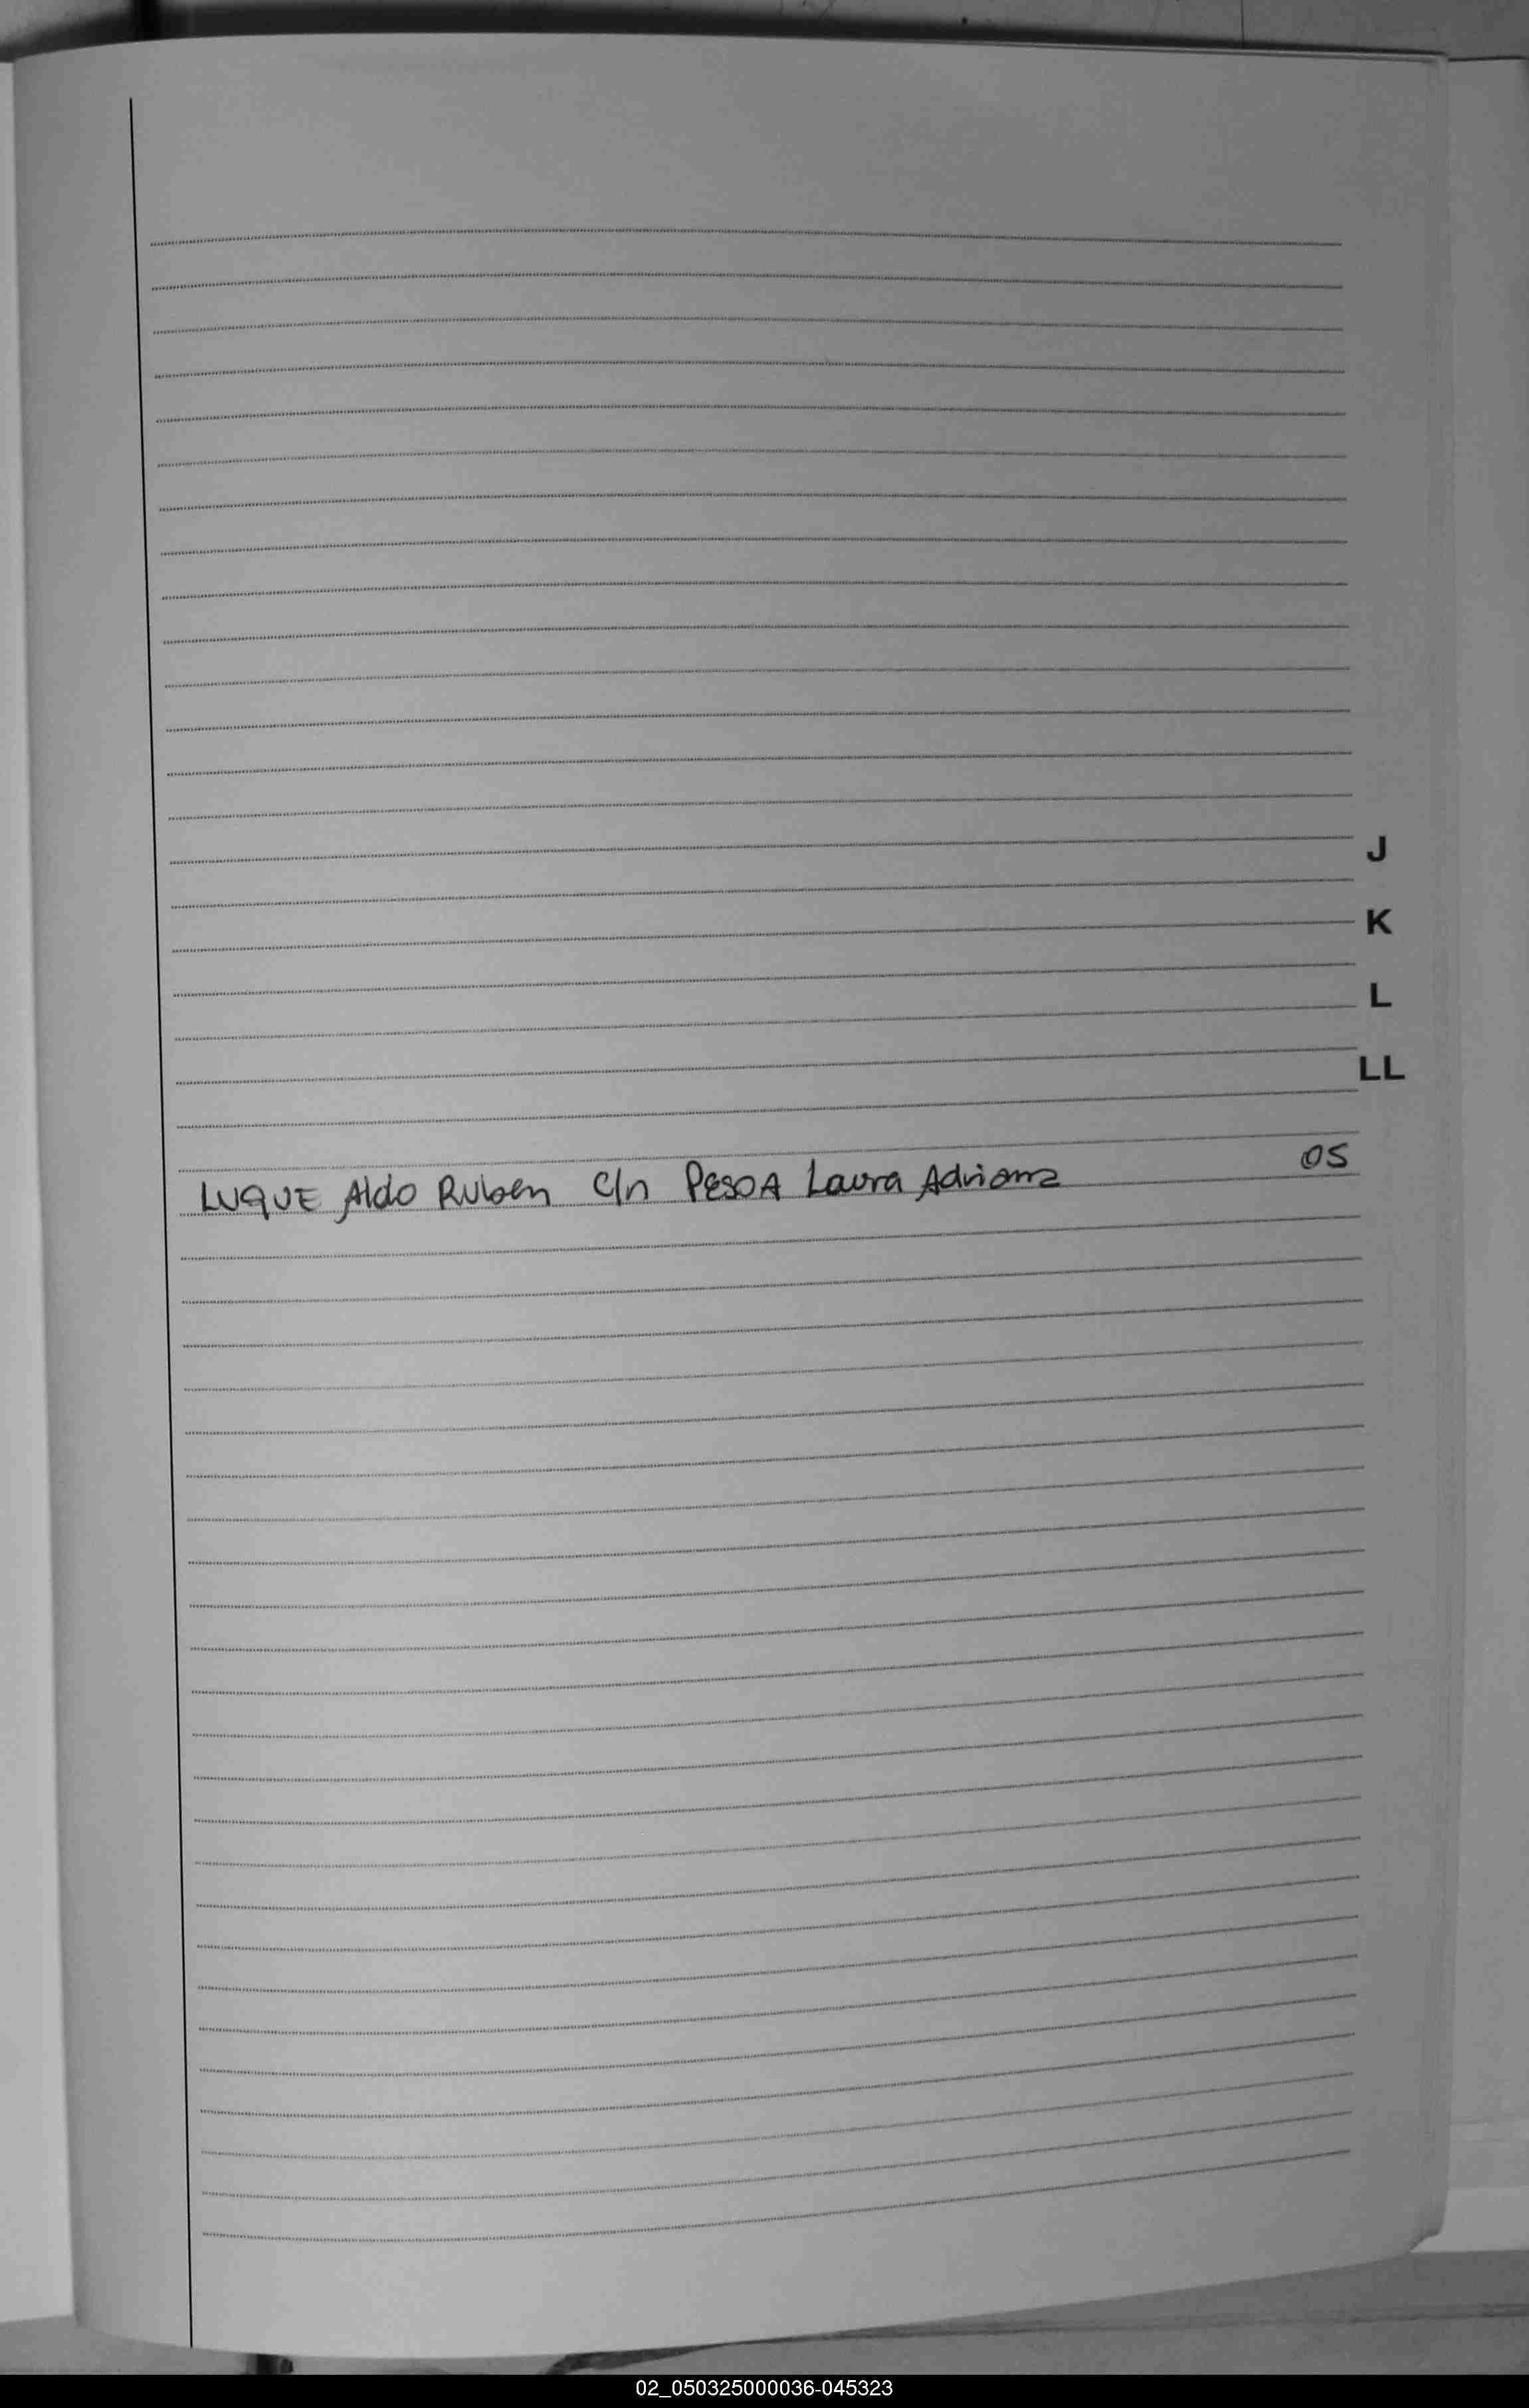 J
K
L
LL
LUQUE Aldo Ruben C/n PESOA Laura Adriana 05
02_050325000036-045323